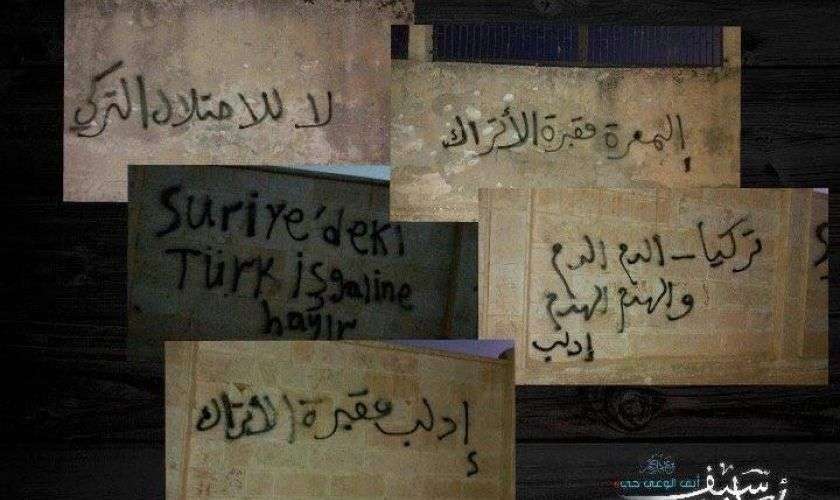 لا للاحتلال التركي
إلمعرة مقبرة الأتراك
Suriye'deki
Türk işgaline
hayır
تركيا - الدم الدم
والهدم الهدم
إدلب
إدلب مقبرة الأتراك